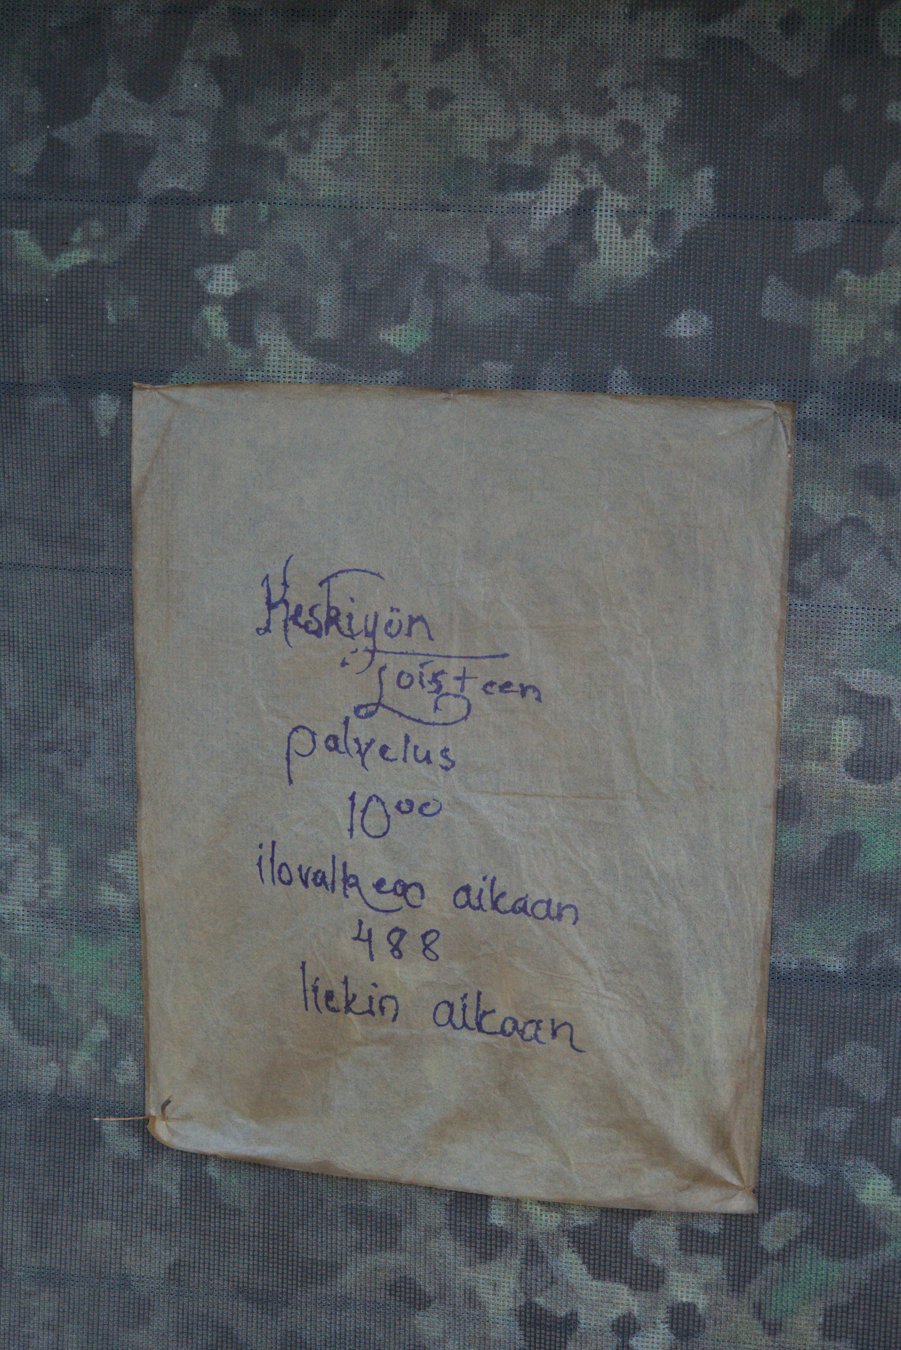 Keskiyön
Loisteen
palvelus
10⁰⁰
ilovalkean aikaan
488
liekin aikaan